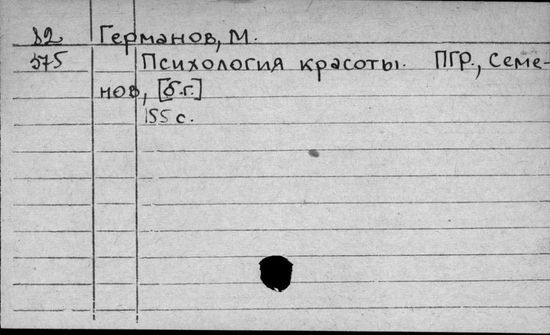 82 Германов, М.
575 Психология красоты. ПГР., Семе-
нов, [б.г.]
155 с.